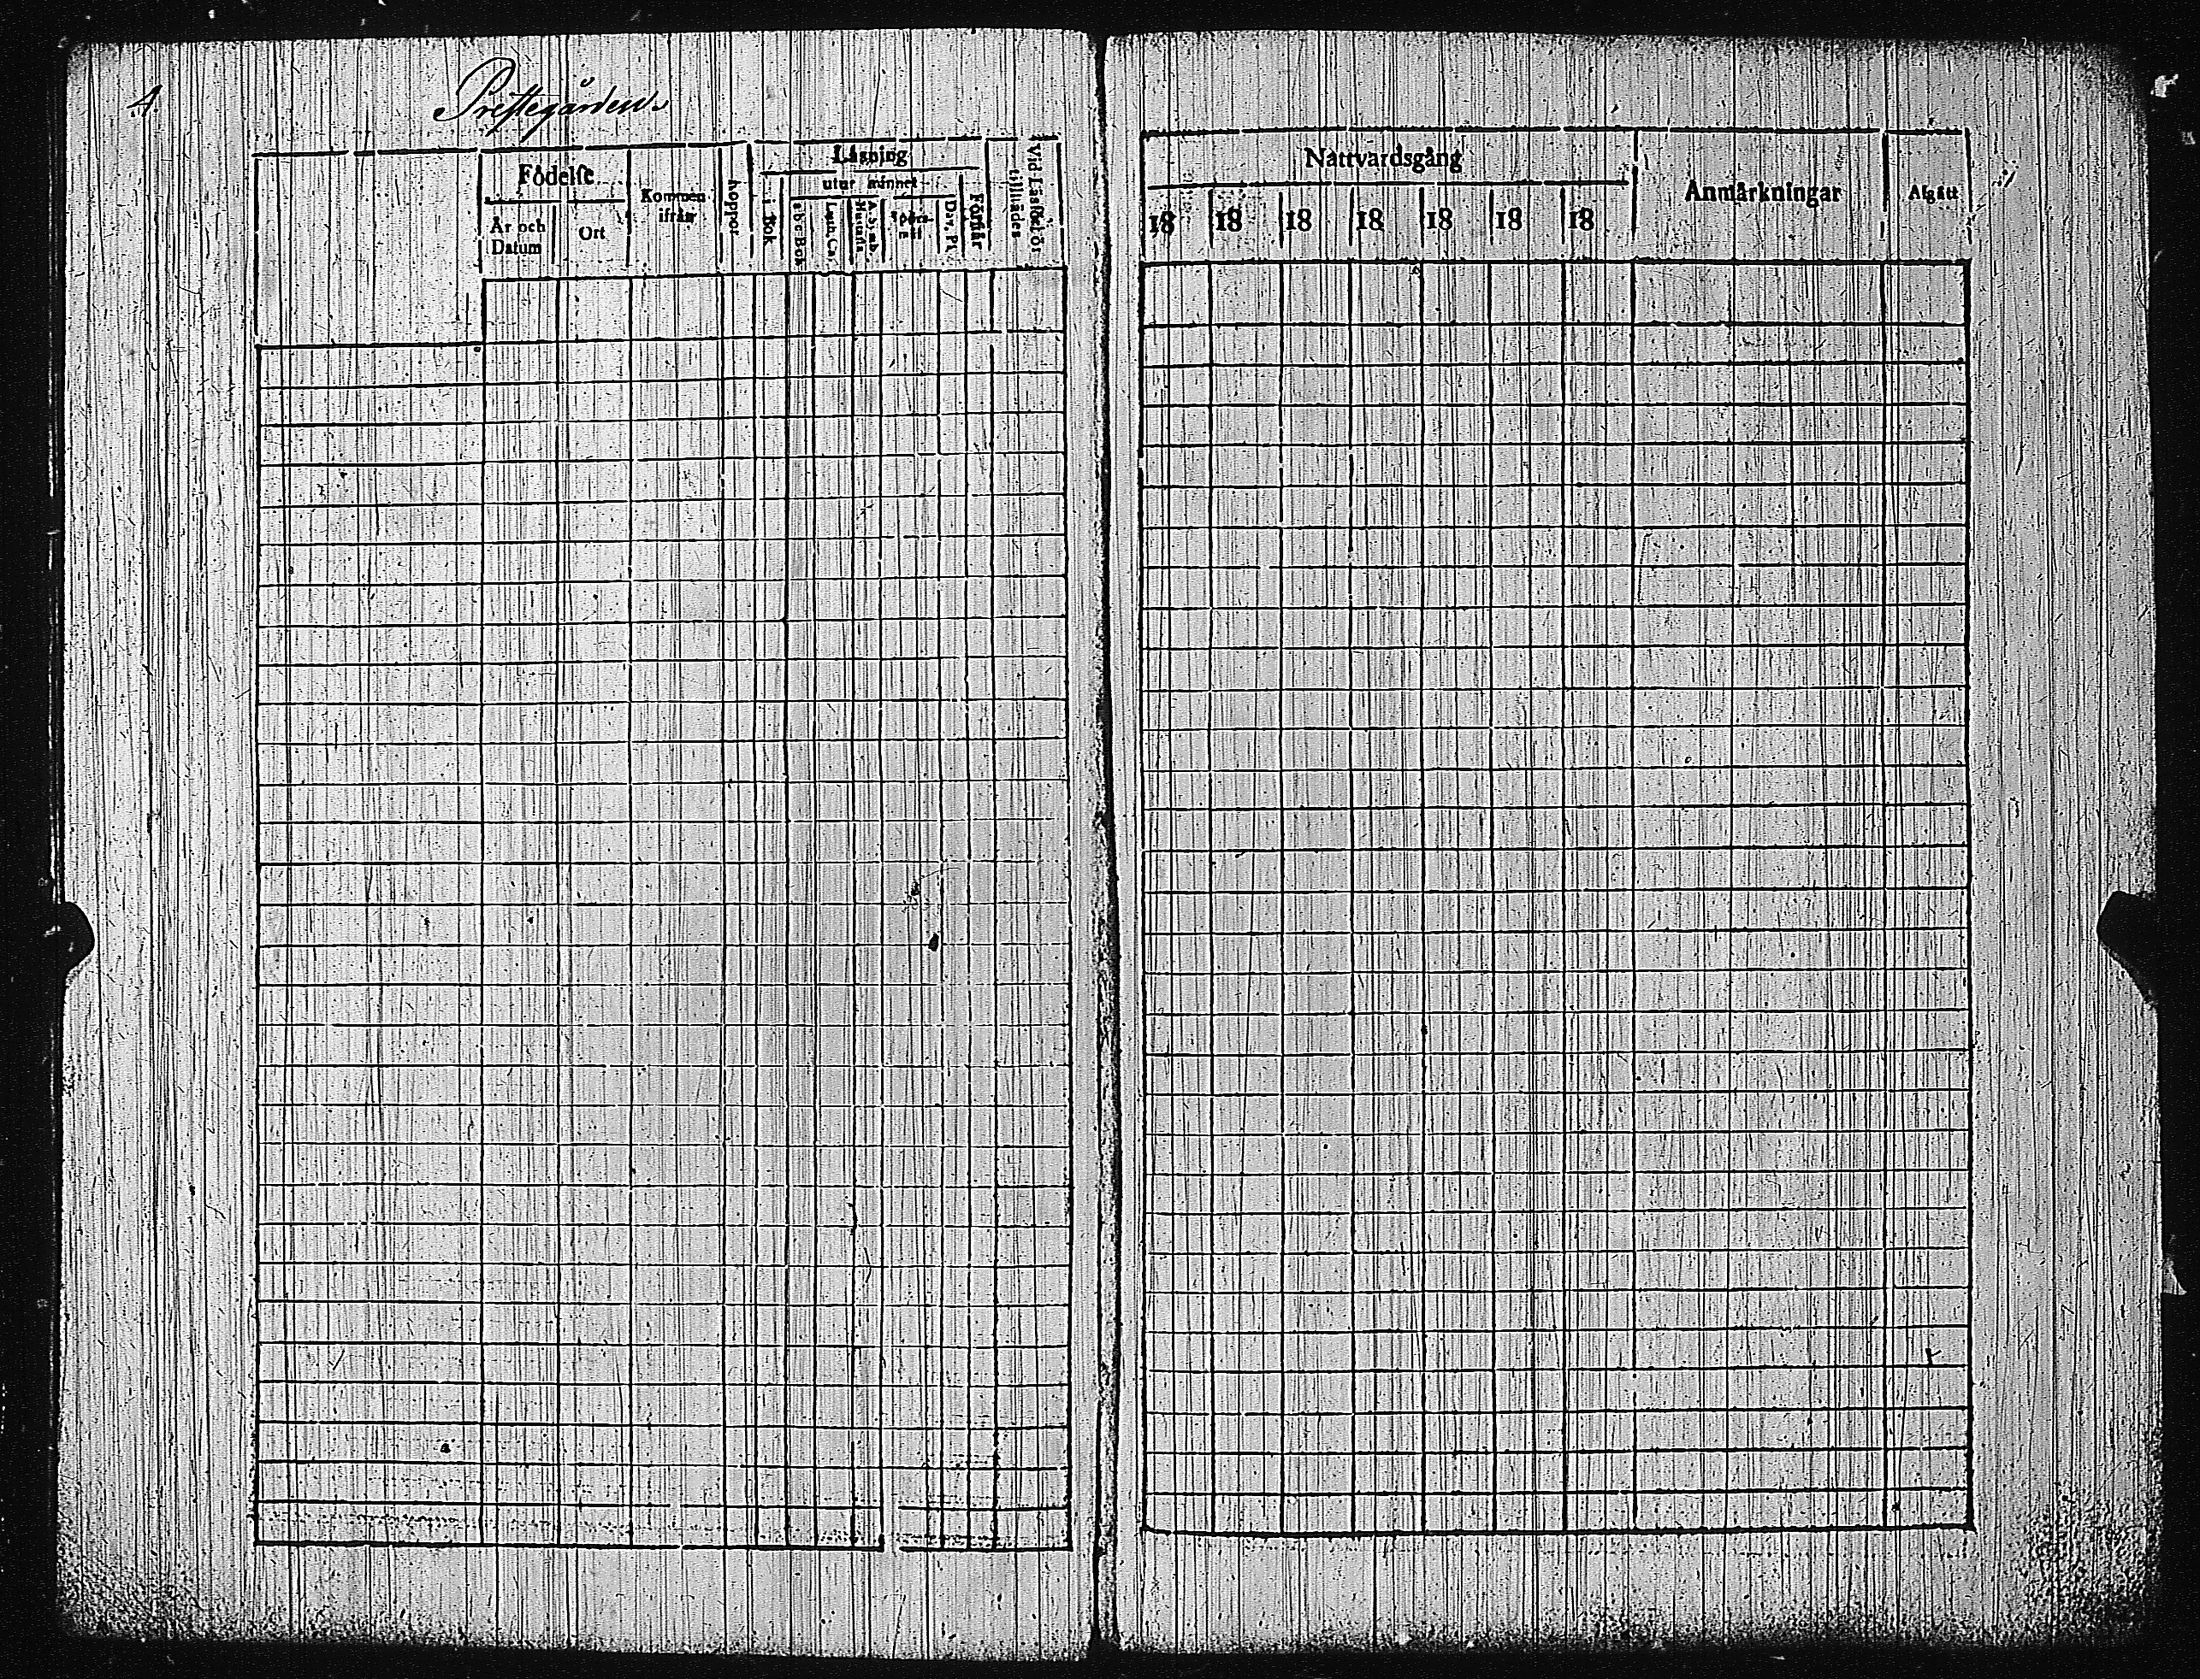 4.
Prestegården
Födelse
År och Datum
Ort
Kommen ifrån
Koppor
Läsning
i Bok
utur minnet
a.b.c. Bok
Luth. Ca.
Hustafla
Spörsmål
Dav. Ps.
Förstår
Vid Läsförhör tillstädes
Nattvardsgång
18 18 18 18 18 18 18
Anmärkningar
Afgått